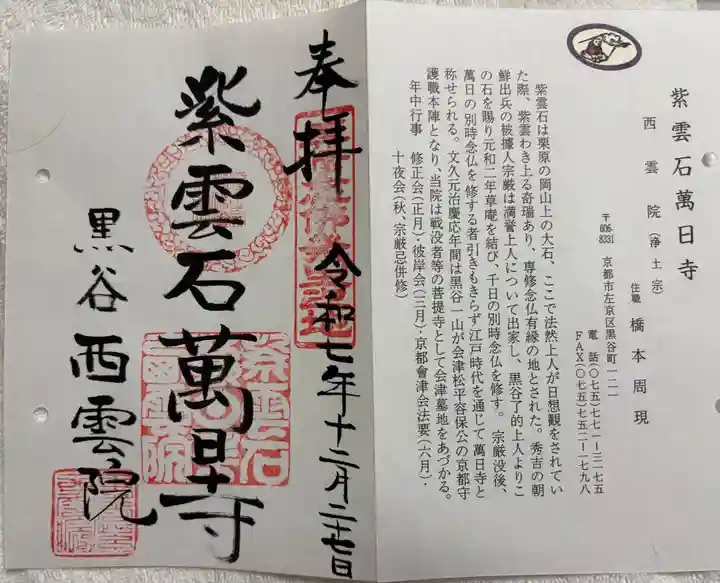 紫雲石萬日寺
西雲院(浄土宗)
住職 橋本周現
〒606-8331 京都市左京区黒谷町一二一
電話(〇七五)七七一-三一七五
FAX(〇七五)七五二-一七九八
紫雲石は栗原の岡山上の大石、ここで法然上人が日想観をされてい
た際、紫雲わき上る奇瑞あり、専修念仏有縁の地とされた。秀吉の朝
鮮出兵の被擄人宗厳は満誉上人について出家し、黒谷了的上人よりこ
の石を賜り元和二年草庵を結び、千日の別時念仏を修す。宗厳没後、
萬日の別時念仏を修する者引きもきらず江戸時代を通じて萬日寺と
称せられる。文久元治慶応年間は黒谷一山が会津松平容保公の京都守
護職本陣となり、当院は戦没者等の菩提寺として会津墓地をあづかる。
年中行事 修正会(正月)・彼岸会(三月)・京都會津会法要(六月)・
十夜会(秋、宗厳忌併修)
奉拝 令和七年十二月二十七日
紫雲石萬日寺
黒谷西雲院
紫雲石
西雲院